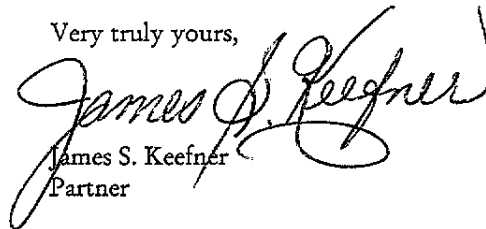 Very truly yours,
James S. Keefner
James S. Keefner
Partner